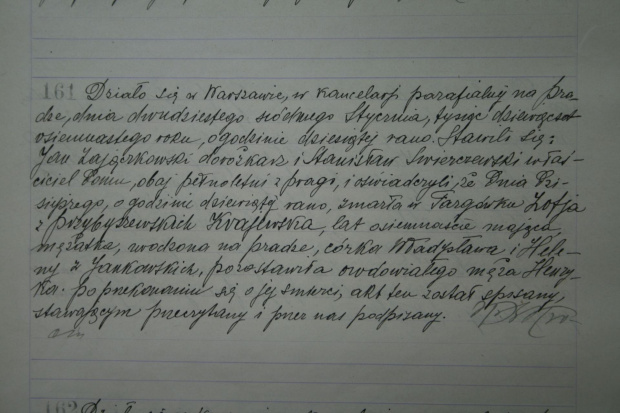 161 Działo się w Warszawie, w kancelarji parafialnej na Pra-
dze, dnia dwudziestego siódmego Stycznia, tysiąc dziewięćset
osiemnastego roku, o godzinie dziesiątej rano. Stawili się:
Jan Zajączkowski dorożkarz i Stanisław Świerczewski właś-
ciciel domu, obaj pełnoletni z Pragi, i oświadczyli, że dnia dzi-
siejszego, o godzinie dziewiątej rano, zmarła w Targówku Zofja
z Przybyszewskich Krajewska, lat osiemnaście mająca,
mężatka, urodzona na Pradze, córka Władysława i Hele-
ny z Jankowskich, pozostawiła owdowiałego męża Henry-
ka. Po przekonaniu się o jej śmierci, akt ten został spisany,
stawającym przeczytany i przez nas podpisany.
162